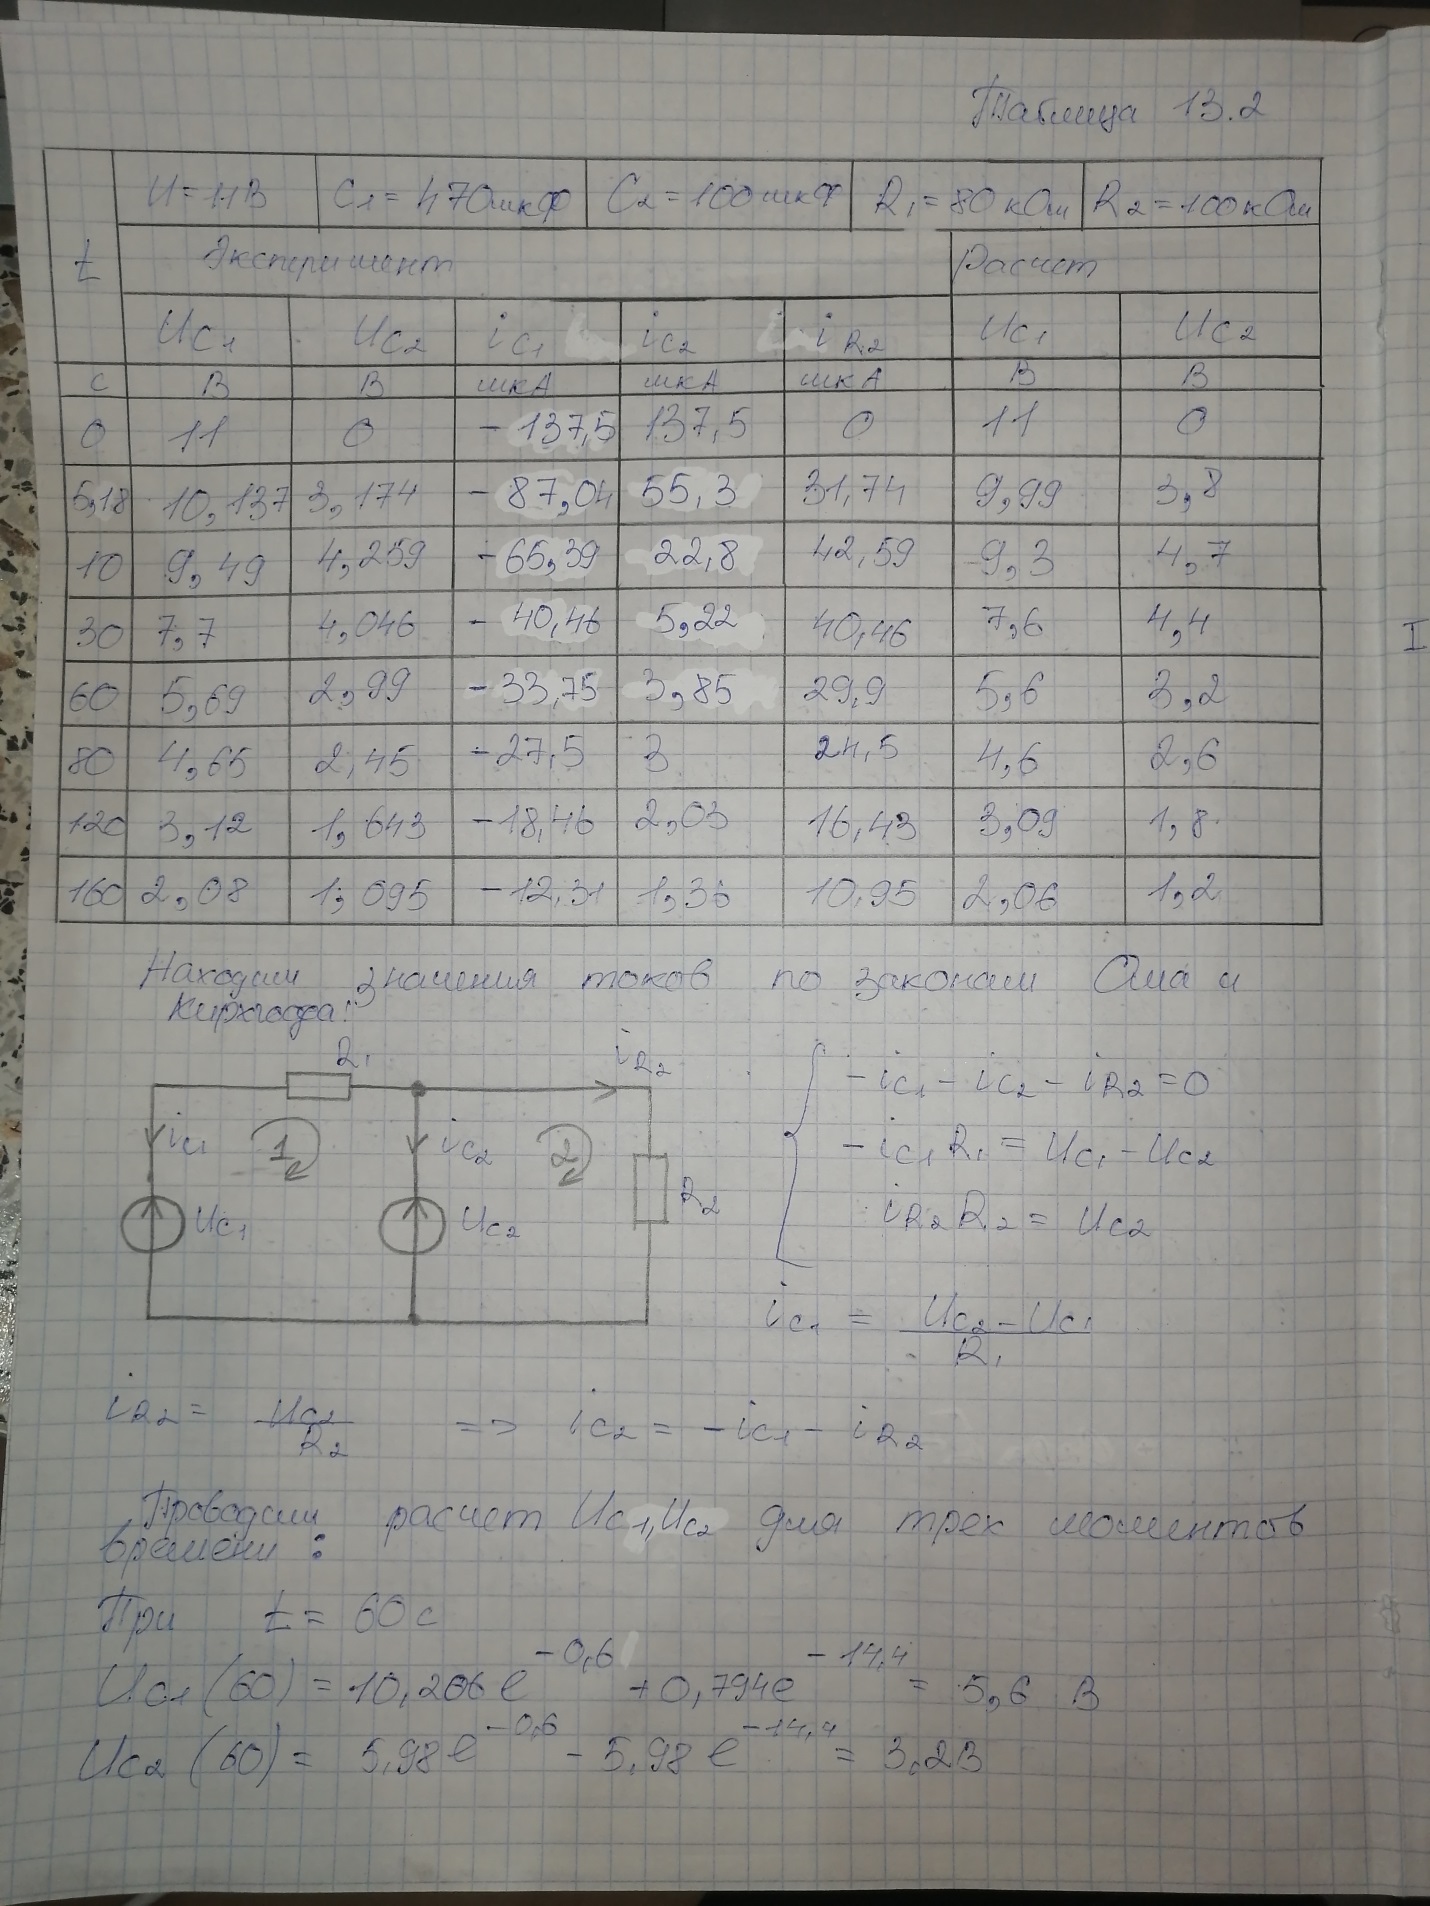 Таблица 13.2
t U=11В C1=470мкФ C2=100мкФ R1=80 кОм R2=100кОм
Эксперимент Расчет
UC1 UC2 iC1 iC2 iR2 UC1 UC2
с В В мкА мкА мкА В В
0 11 0 -137,5 137,5 0 11 0
5,18 10,137 3,174 -87,04 55,3 31,74 9,99 3,8
10 9,49 4,259 -65,39 22,8 42,59 9,3 4,7
30 7,7 4,046 -40,46 5,22 40,46 7,6 4,4
I
60 5,69 2,99 -33,75 3,85 29,9 5,6 3,2
80 4,65 2,45 -27,5 3 24,5 4,6 2,6
120 3,12 1,643 -18,46 2,03 16,43 3,09 1,8
160 2,08 1,095 -12,31 1,36 10,95 2,06 1,2
Находим значения токов по законам Ома и
Кирхгофа:
R1 iR2
-iC1 - iC2 - iR2 = 0
iC1 1 iC2 2
-iC1 R1 = UC1 - UC2
UC1 UC2 R2
iR2 R2 = UC2
iC1 = (UC2 - UC1)/R1
iR2 = UC2/R2 => iC2 = -iC1 - iR2
Проводим расчет UC1, UC2 для трех моментов
времени:
При t = 60 с
UC1 (60) = 10,206 e^-0,6 + 0,794e^-14,4 = 5,6 В
UC2 (60) = 5,98 e^-0,6 - 5,98 e^-14,4 = 3,2В